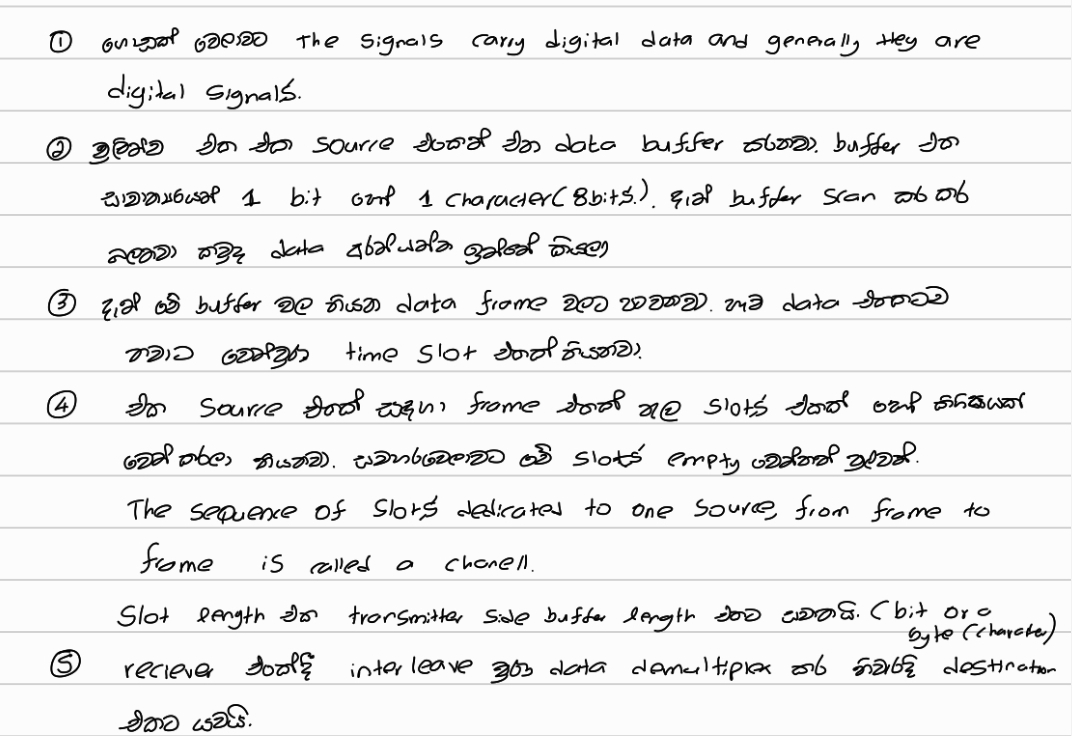 ① ගොඩක් වෙලාවට The signals carry digital data and generally they are
digital signals.
② මුලින්ම එක එක source එකෙන් එන data buffer කරනවා. buffer එක
සාමාන්‍යයෙන් 1 bit හෝ 1 character (8bits.). දැන් buffer scan කර කර
බලනවා කවුද data අරන් යන්න ඉන්නේ කියලා
③ දැන් මේ buffer වල තියන data frame වලට පටවනවා. හැම data එකකටම
තමාට වෙන්වුන time slot එකක් තියනවා.
④ එක source එකක් සඳහා frame එකක් තුල slots එකක් හෝ කිහිපයක්
වෙන් කරලා තියනවා. සමහරවෙලාවට මේ slots empty වෙන්නත් පුලුවන්.
The sequence of slots dedicated to one source, from frame to
frame is called a chanell.
Slot length එක transmitter side buffer length එකට සමානයි. (bit or a
byte (character)
⑤ reciever එකේදි interleave වුන data demultiplex කර නිවැරදි destination
එකට යවයි.